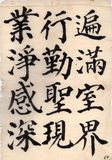 遍滿室界
行勤聖現
業淨感深